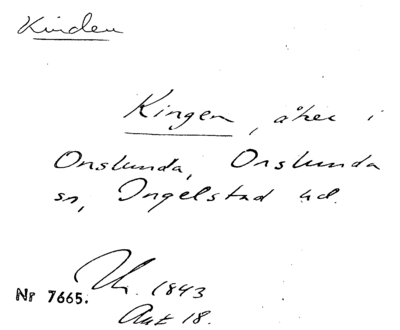 Kinden
Kingen, åker i
Onslunda, Onslunda
sn, Ingelstad hd.
Nr 7665.
1843
Akt 18.